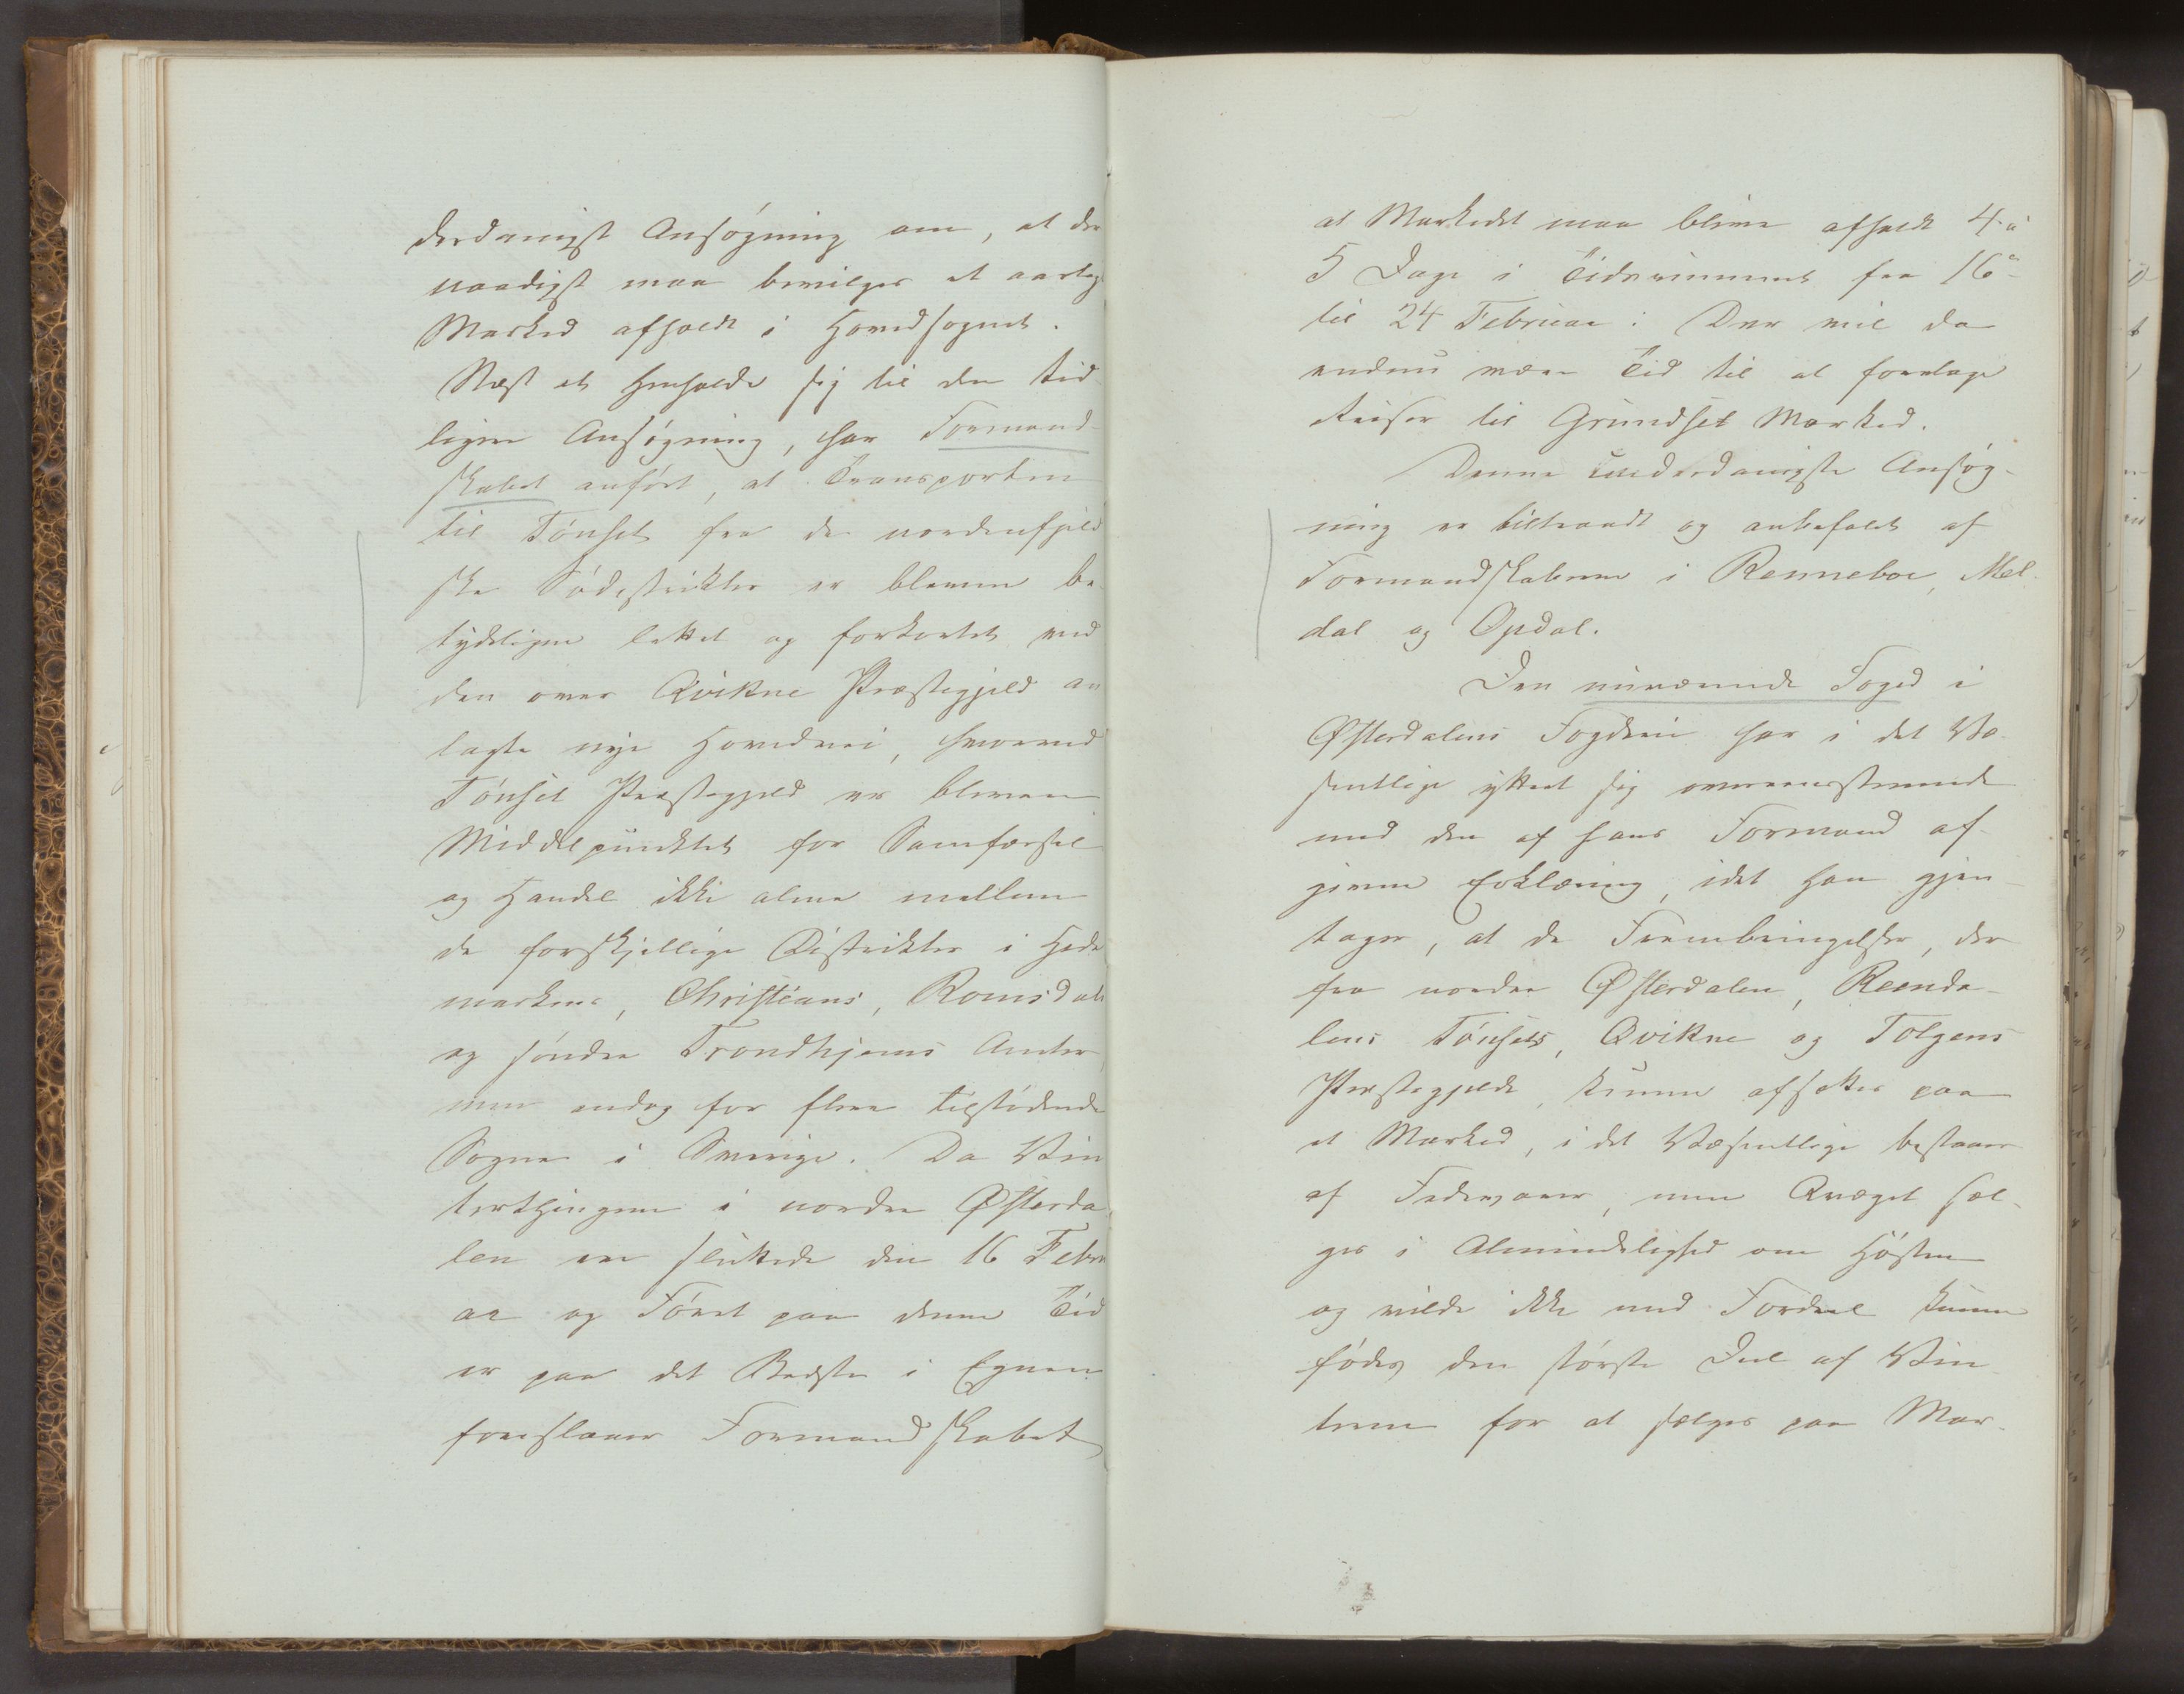 derdanigst Ansøgning om, at der
naadigst maa bevilges et aarlig
Marked afholdt i Hovedsognet.
Næst at henholde sig til den tid-
ligere Ansøgning, har Formand-
skabet anført, at Transporten
til Tønset fra de nordenfjeld
ske Sødistrikter er bleven be
tydeligen lettet og forkortet ved
den over Qvikne Præstegjeld an
lagte nye Hovedvei, hvorved
Tønset Præstegjeld er bleven
Middelpunktet for Samfærsel
og Handel ikke alene mellem
de forskjellige Distrikter i Hede
markens, Christians, Romsdals
og søndre Trondhjems Amter,
men endog for flere tilstødende
Sogne i Sverige. Da Vin
terthingene i nordre Østerda
len ere sluttede den 16 Febru
ar og Føret paa denne Tid
er paa det Bedste i Egnen
foreslaaer Formandskabet
at Markedet maa blive afholdt 4 à
5 Dage i Tidsrummet fra 16de
til 24 Februar: Der vil da
endnu være Tid til at foretage
Reiser til Grundset Marked.
Denne underdanigste Ansøg-
ning er tiltraadt og anbefalet af
Formandskaberne i Renneboe, Mel-
dal og Opdal.
Den nuværende Foged i
Østerdalens Fogderi har i det Væ-
sentlige yttret sig overeensstemmende
med den af hans Formand af-
givne Erklæring, idet han gjen-
tager, at de Frembringelser, der
fra nordre Østerdalen, Reenda-
lens Tønsets, Qvikne og Tolgens
Præstegjelde, kunne afsættes paa
et Marked, i det Væsentlige bestaaer
af Fedevarer, men Qvæget sæl-
ges i Almindelighed om Høsten
og vilde ikke med Fordeel kunne
fødes den største Deel af Vin
teren for at sælges paa Mar-